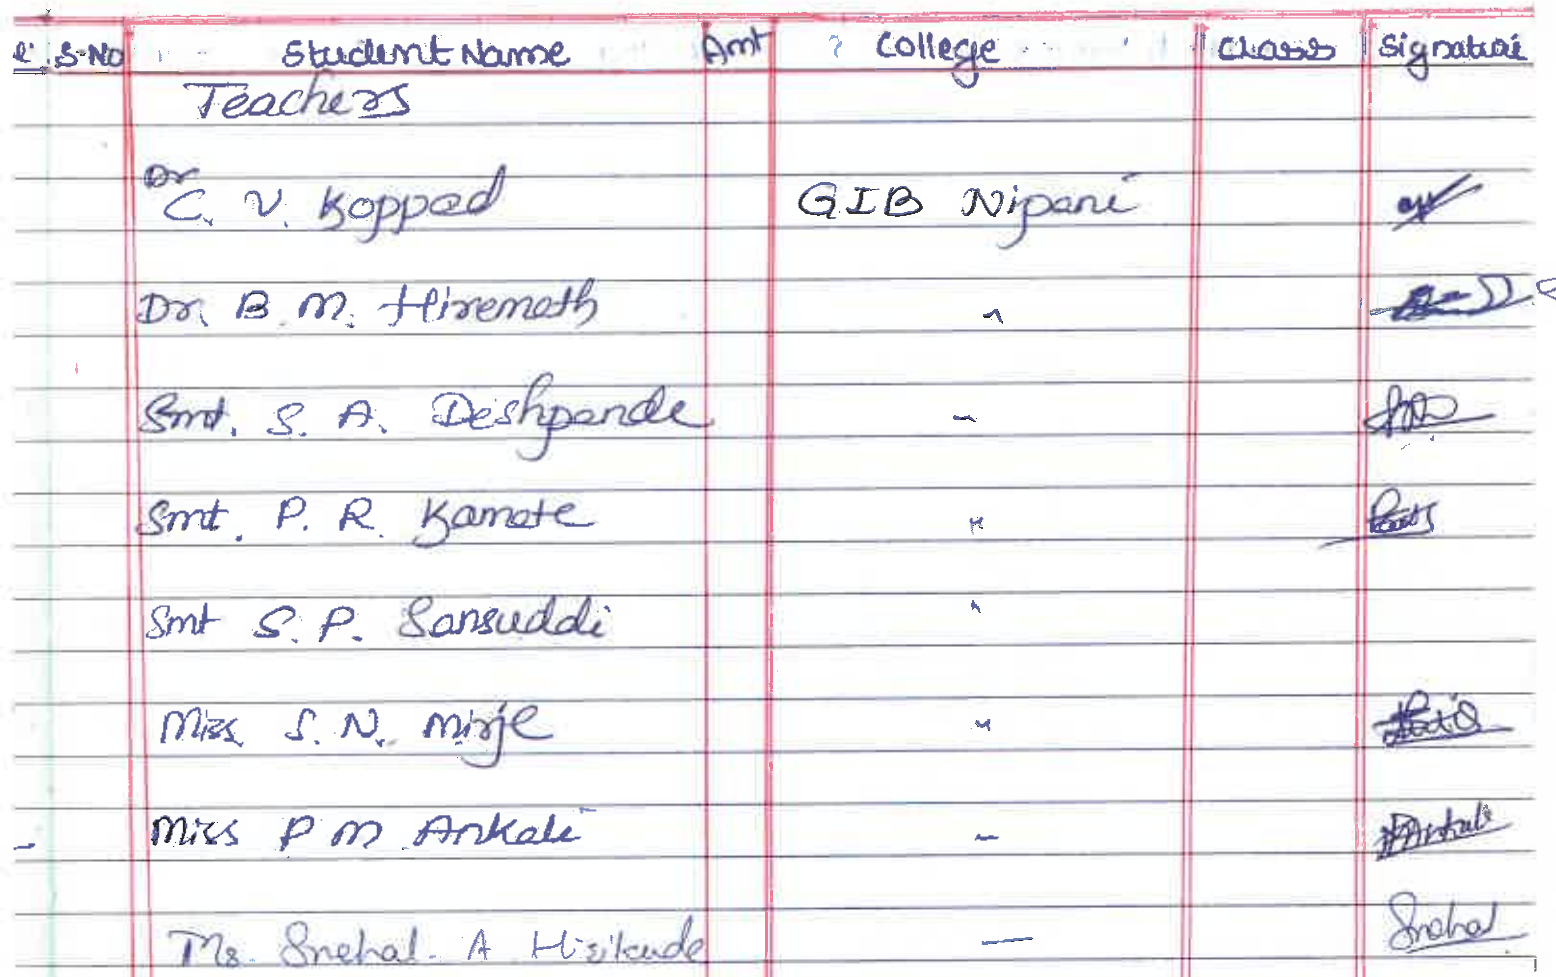 S.No Student Name Amt College Class Signature
Teachers
Dr C. V. Koppad GIB Nipani
Dr. B. M. Hiremath
Smt. S. A. Deshpande -
Smt. P. R. Kamate "
Smt S. P. Sansuddi "
Miss. S. N. Mirje "
Miss P M Ankali - Ankali
Ms. Snehal. A - Snehal